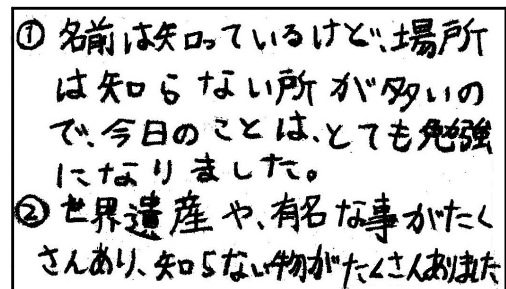 ① 名前は知っているけど、場所
は知らない所が多いの
で、今日のことは、とても勉強
になりました。
② 世界遺産や、有名な事がたく
さんあり、知らない物がたくさんありました